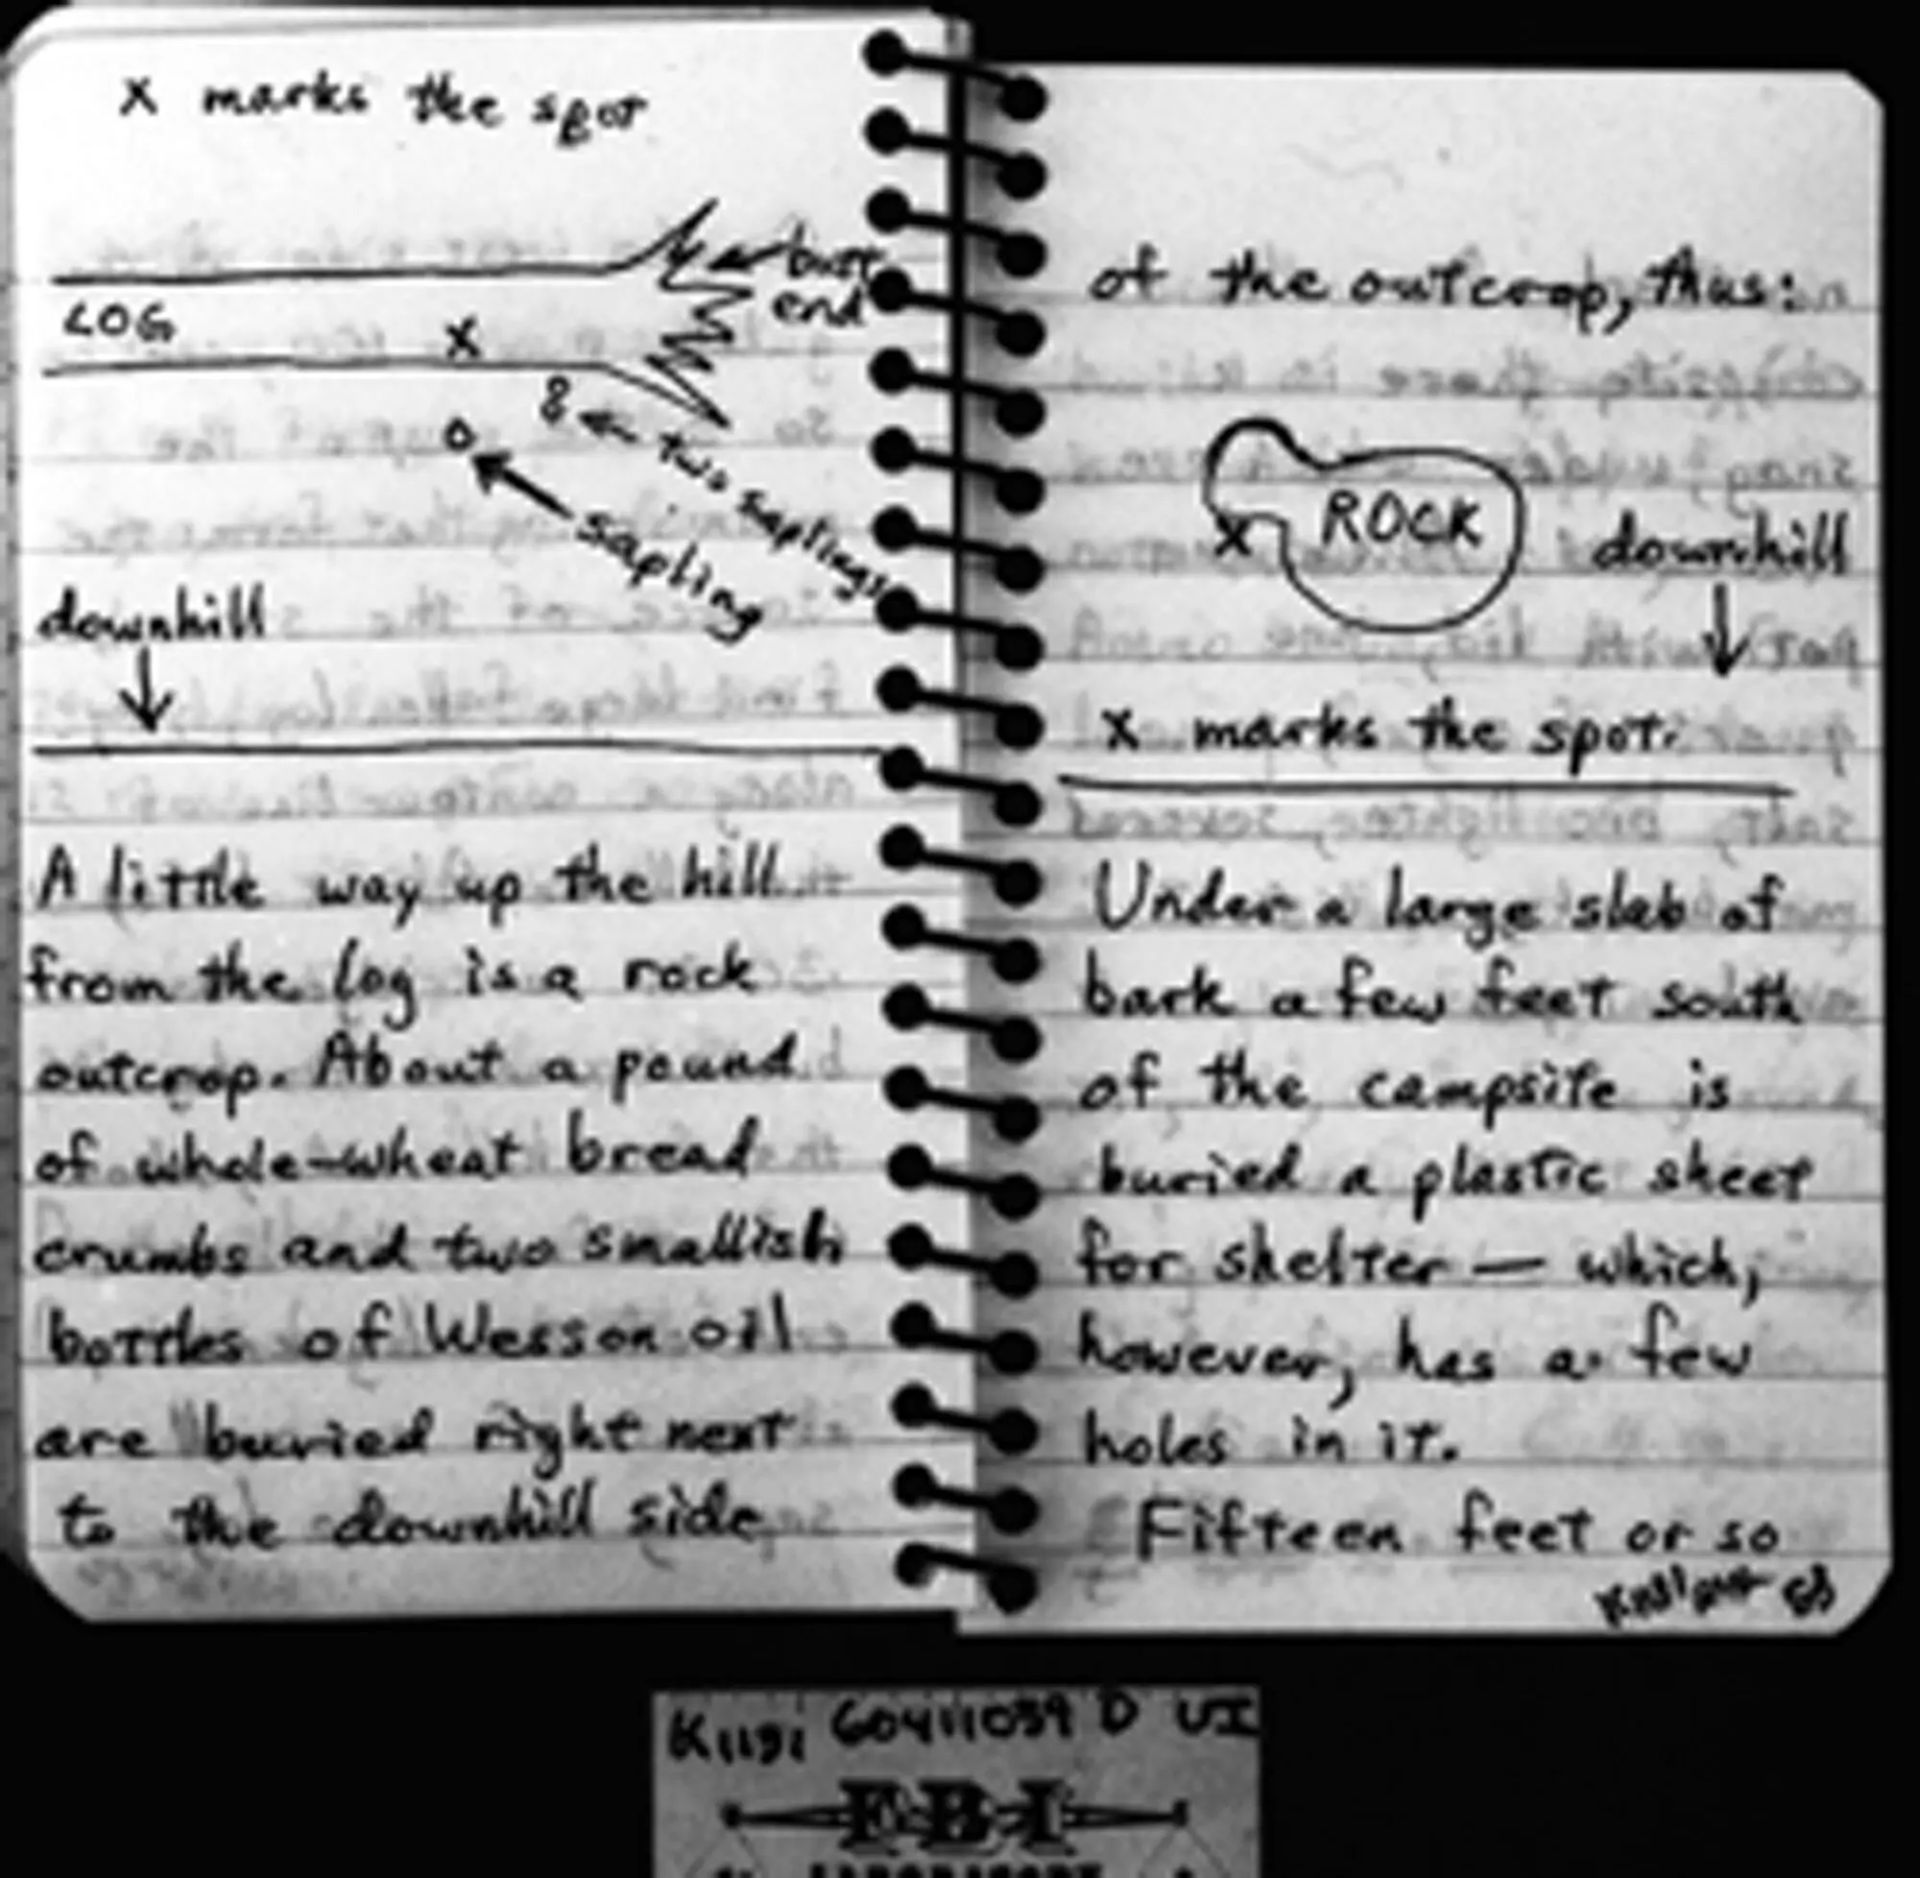 x marks the spot
butt
end
LOG
x
two saplings
sapling
downhill
A little way up the hill
from the log is a rock
outcrop. About a pound
of whole-wheat bread
crumbs and two smallish
bottles of Wesson oil
are buried right next
to the downhill side
of the outcrop, thus:
ROCK
x
downhill
x marks the spot.
Under a large slab of
bark a few feet south
of the campsite is
buried a plastic sheet
for shelter — which,
however, has a few
holes in it.
Fifteen feet or so
60411039 D UI
FBI
LABORATORY